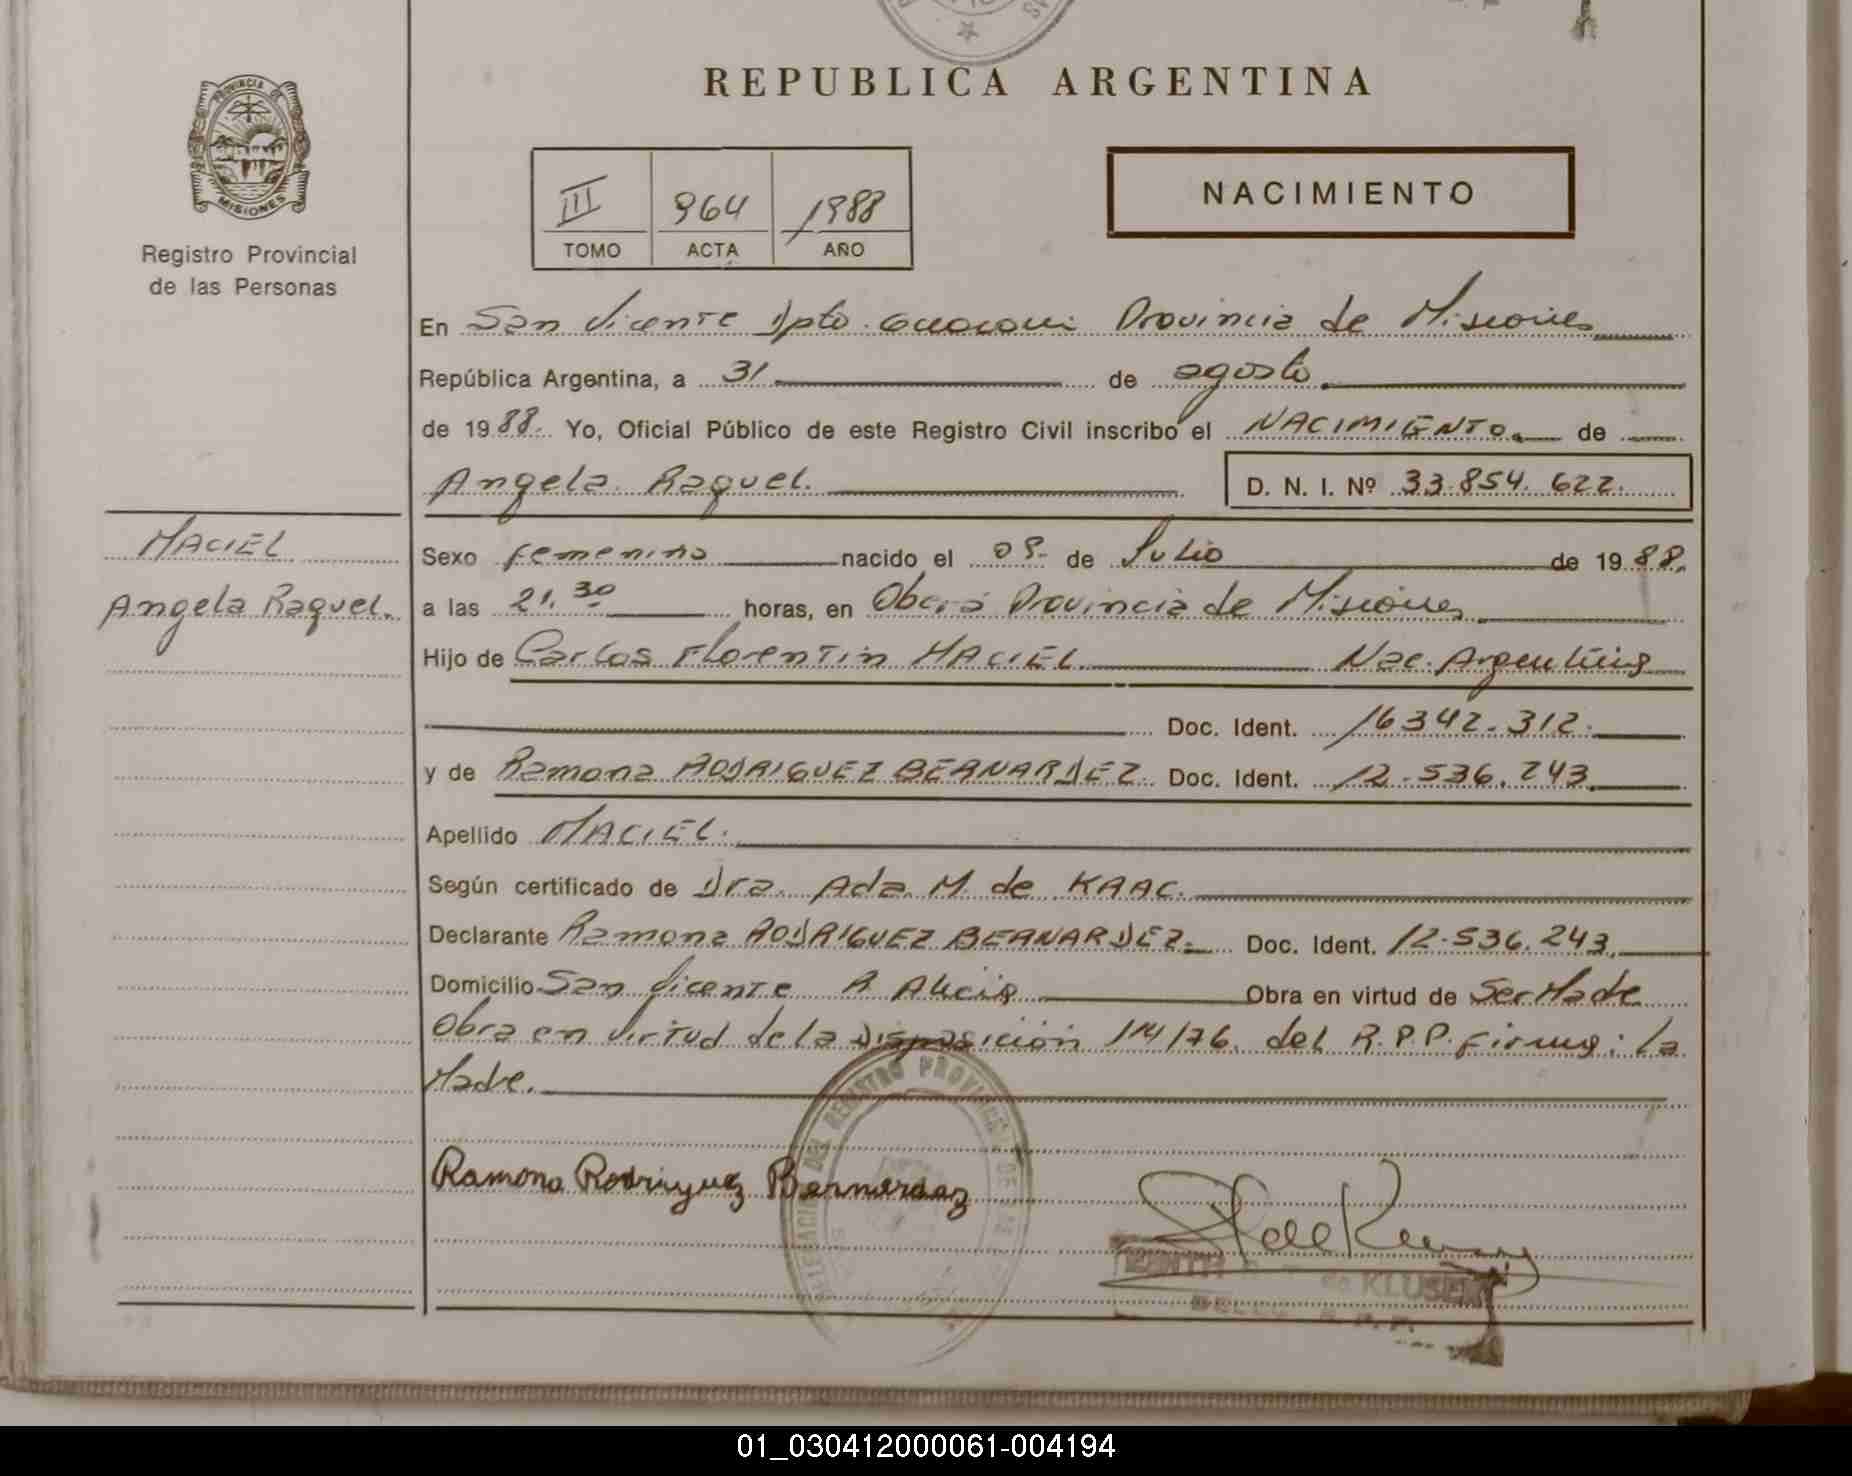 REPUBLICA ARGENTINA
PROVINCIA DE
MISIONES
Registro Provincial
de las Personas
III 964 1988
TOMO ACTA AÑO
NACIMIENTO
En San Vicente Dpto. Guarani Provincia de Misiones
República Argentina, a 31 de agosto
de 1988. Yo, Oficial Público de este Registro Civil inscribo el NACIMIENTO. de
Angela Raquel. D. N. I. Nº 33.854.622.
MACIEL
Angela Raquel.
Sexo femenino nacido el de Julio de 1988.
a las 21.30 horas, en Oberá Provincia de Misiones
Hijo de Carlos Florentin MACIEL Nac. Argentina
Doc. Ident. 16342.312.
y de Ramona RODRIGUEZ BERNARDEZ. Doc. Ident. 12.536.243
Apellido MACIEL.
Según certificado de Dra. Ada M. de KAAC.
Declarante Ramona RODRIGUEZ BERNARDEZ. Doc. Ident. 12.536.243
Domicilio San Vicente Alicia Obra en virtud de Ser Madre
Obra en virtud de la Disposición 114/76. del R.P.P. Firma: La
Madre.
DEL REGISTRO PROVINCIAL DE
Ramona Rodriguez Bernardez
de KLUSENER
R. P. P.
01_030412000061-004194